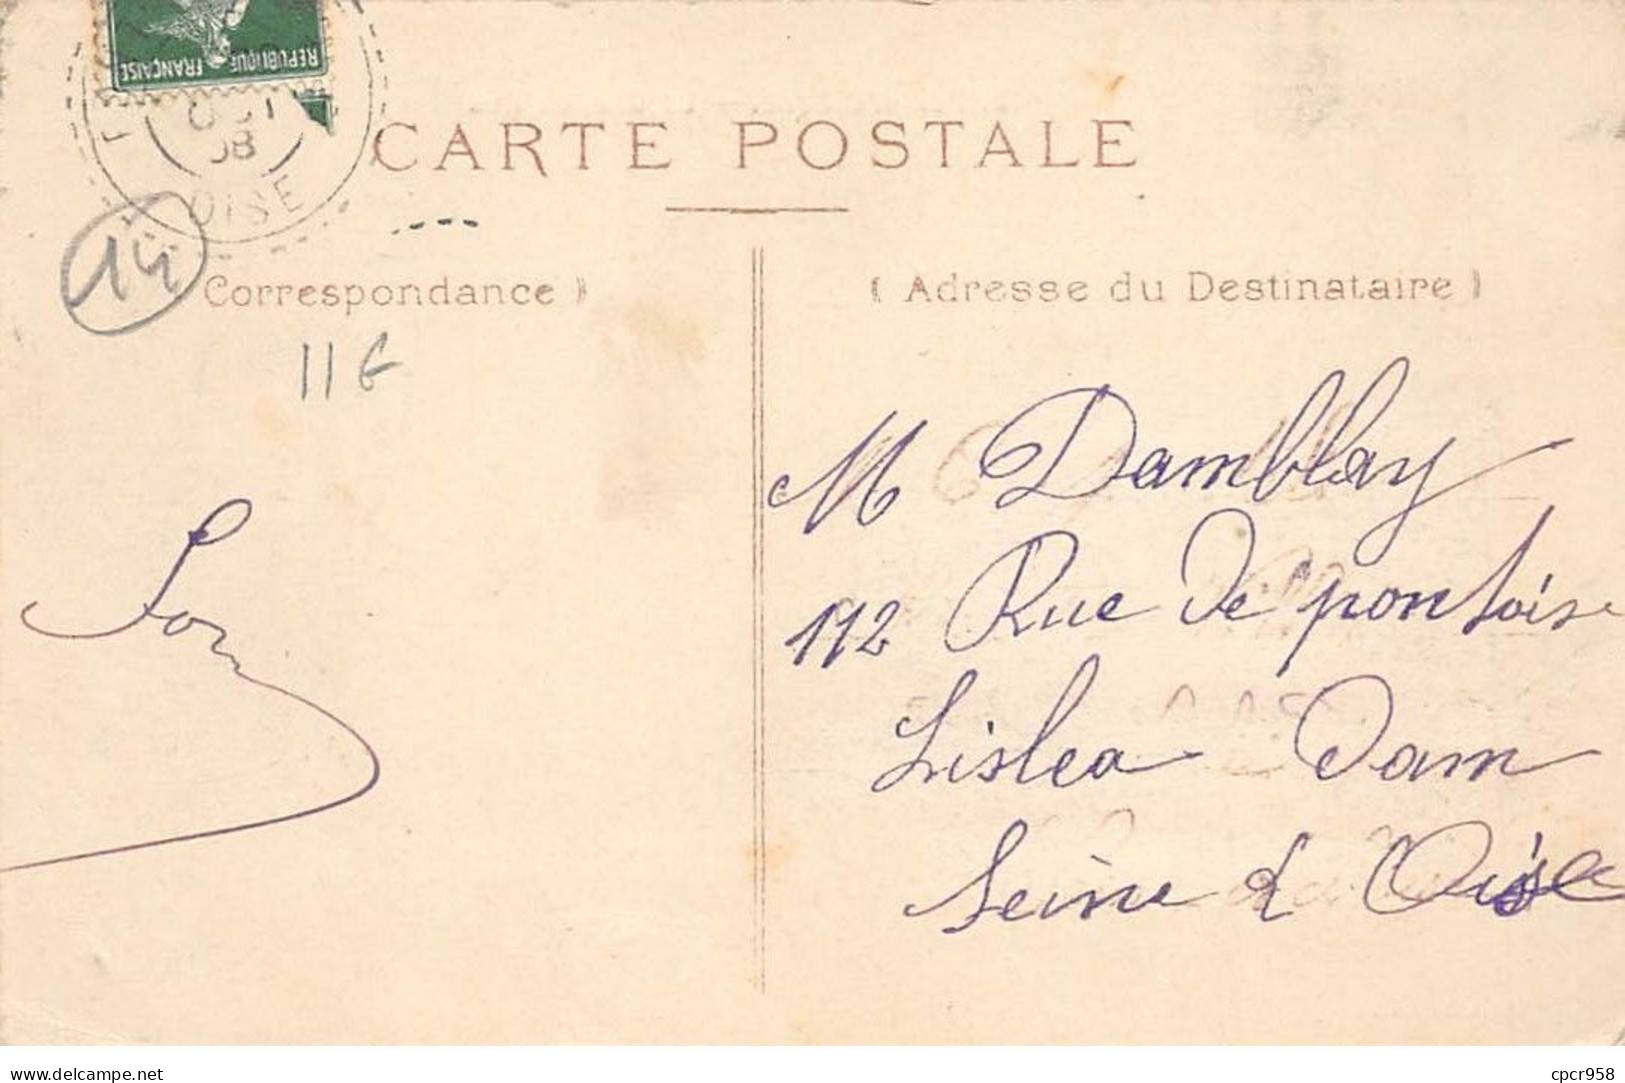 REPUBLIQUE
FRANÇAISE
08
OISE
CARTE POSTALE
14
Correspondance )
( Adresse du Destinataire )
11 €
M Damblay
112 Rue de pontoise
Lislea Dam
Seine & Oise
delcampe.net
cpcr958